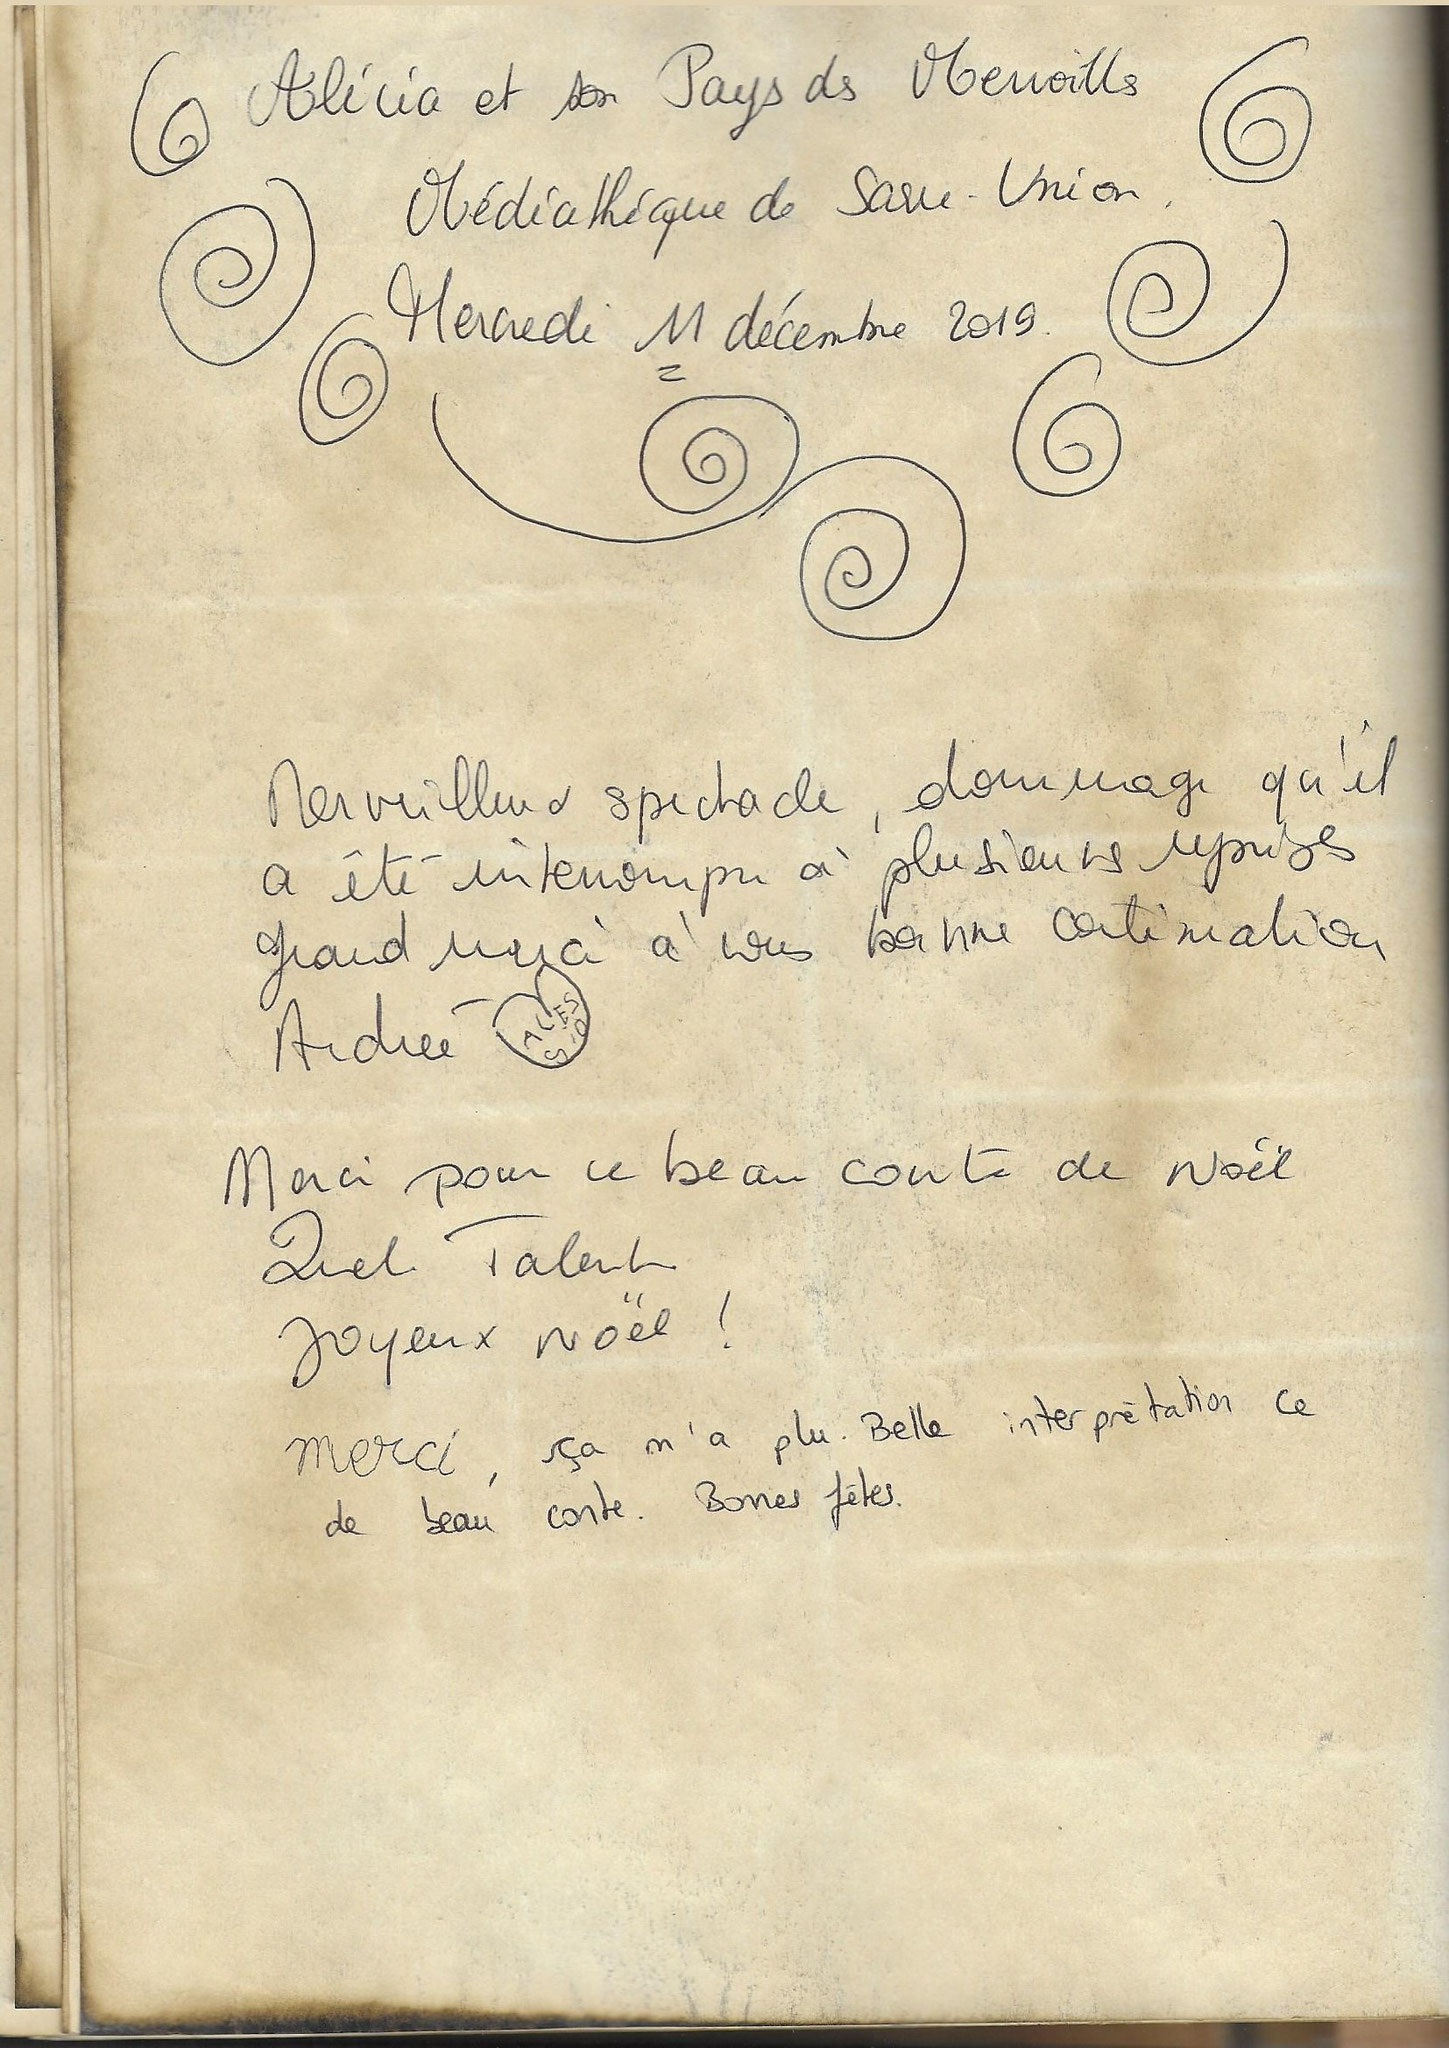 Alicia et son Pays des Merveilles
Médiathèque de Sarre-Union.
Mercredi 11 décembre 2019.
Merveilleux spectacle, dommage qu'il
a été interrompu à plusieurs reprises
grand merci à vous bonne continuation
Andrée
ALES
SIO
Merci pour ce beau conte de Noël
Quel Talent
Joyeux Noël !
merci, ça m'a plu. Belle interprétation ce
de beau conte. Bonnes fêtes.